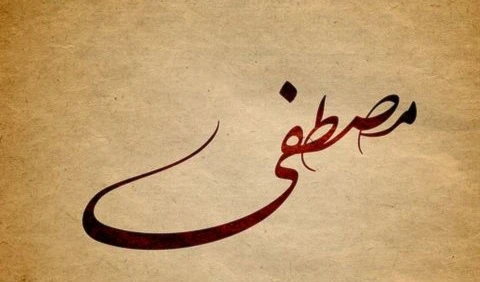 مصطفى